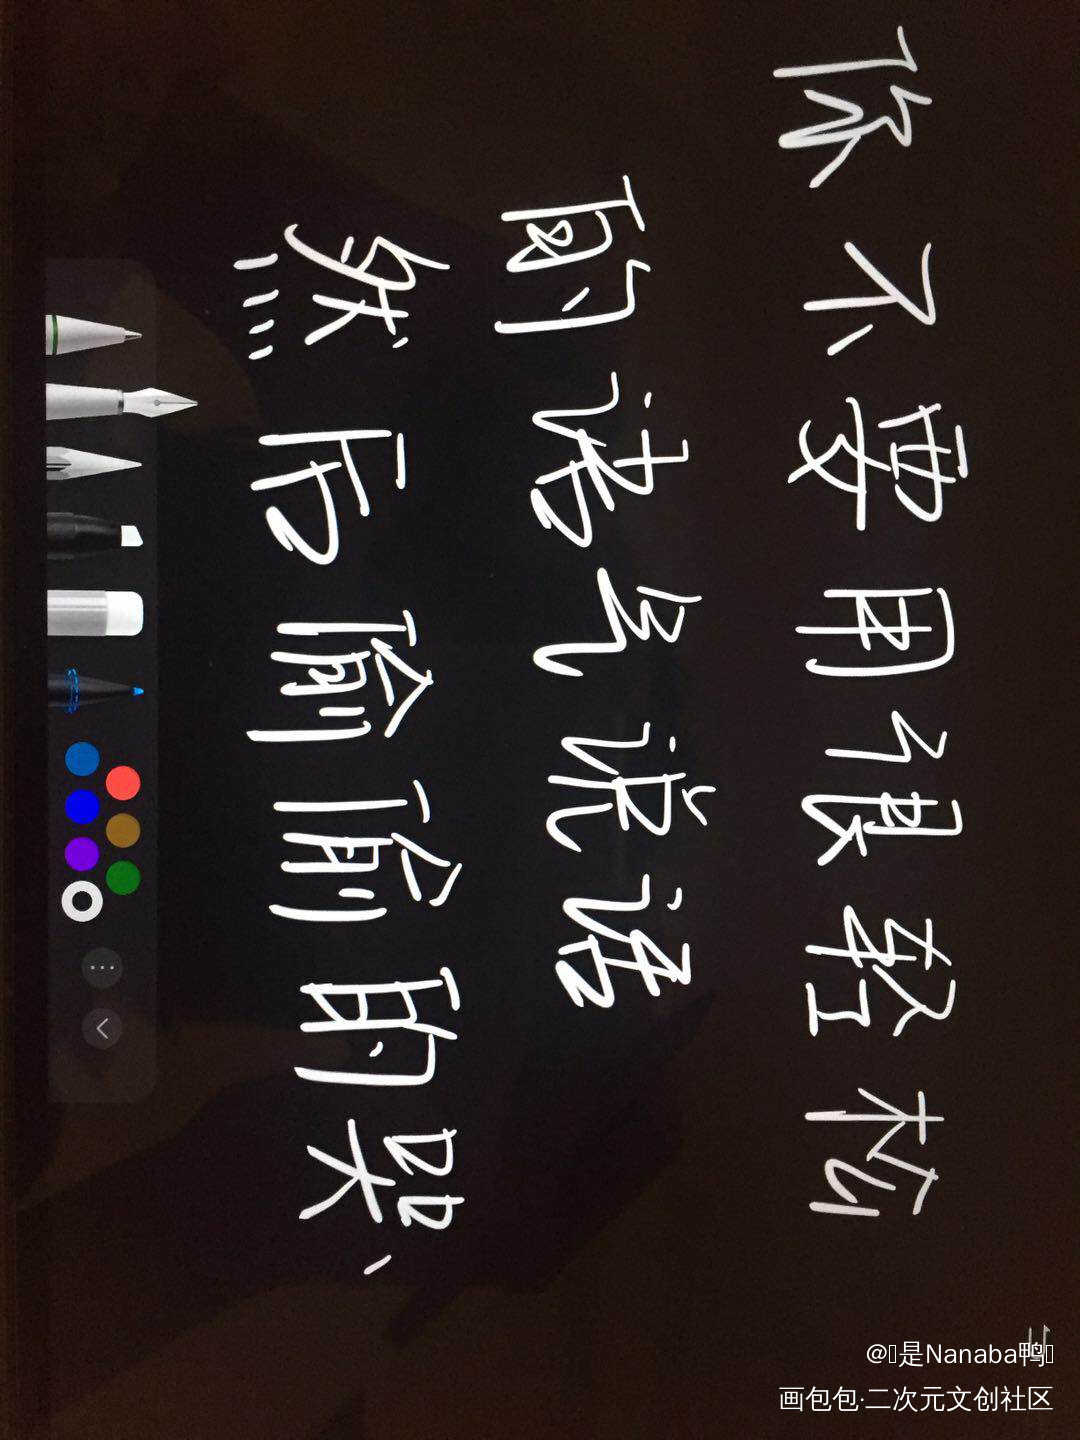 你不要用很轻松
的语气说话
然后偷偷的哭、
@是Nanaba鸭
画包包·二次元文创社区